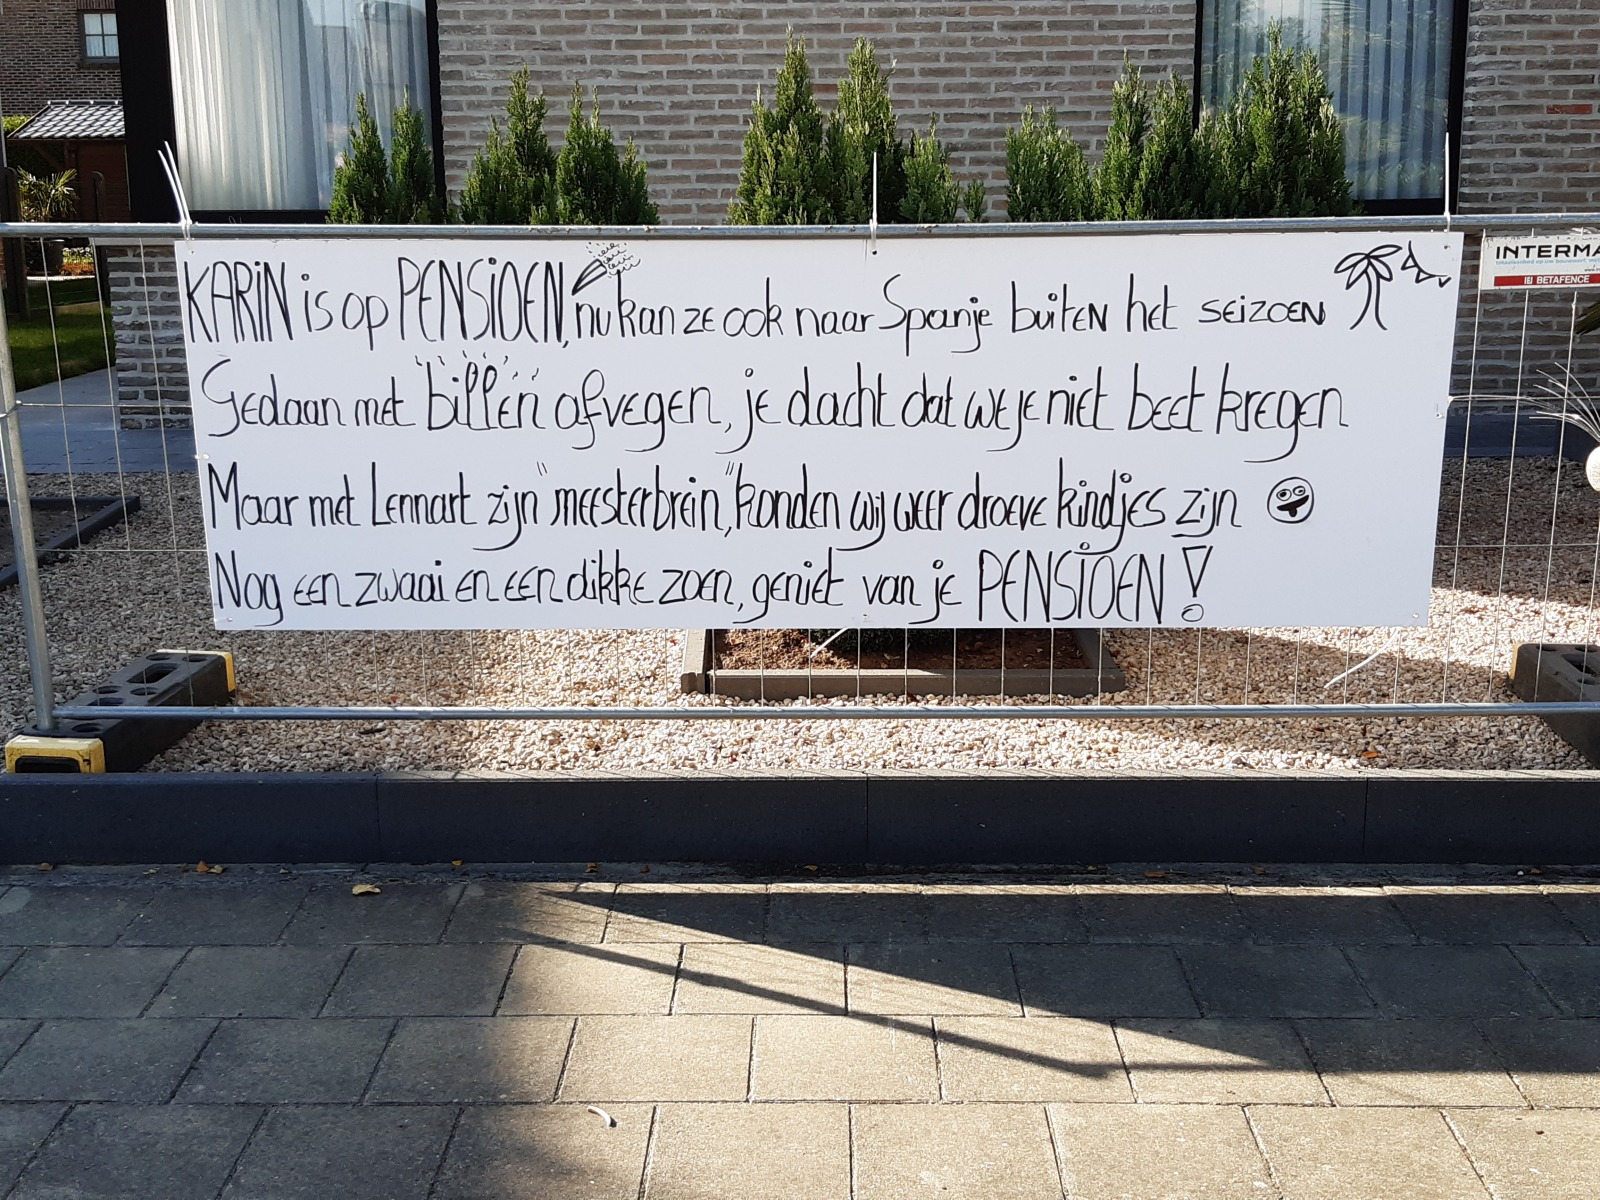 KARiN is op PENSiOEN, nu kan ze ook naar Spanje buiten het seizoen
Gedaan met billen afvegen, je dacht dat we je niet beet kregen
Maar met Lennart zijn "meesterbrein," konden wij weer droeve kindjes zijn
Nog een zwaai en een dikke zoen, geniet van je PENSiOEN!
INTERMA
BETAFENCE